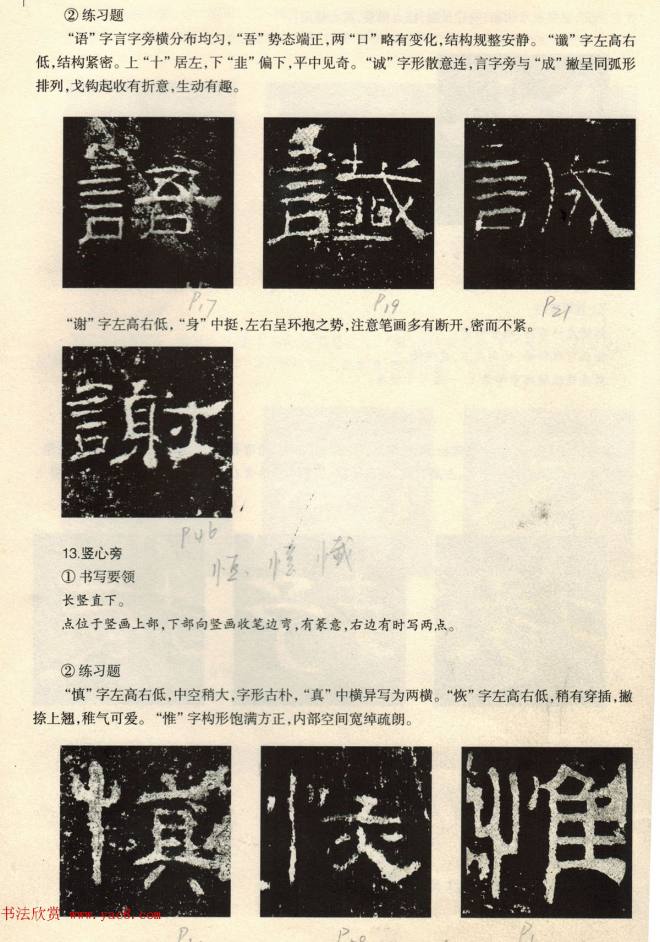 ② 练习题
“语”字言字旁横分布均匀，“吾”势态端正，两“口”略有变化，结构规整安静。“谶”字左高右
低，结构紧密。上“十”居左，下“韭”偏下，平中见奇。“诚”字形散意连，言字旁与“成”撇呈同弧形
排列，戈钩起收有折意，生动有趣。
語 讖 誠
P17 P19 P21
“谢”字左高右低，“身”中挺，左右呈环抱之势，注意笔画多有断开，密而不紧。
謝
P46
13.竖心旁
① 书写要领
长竖直下。
点位于竖画上部，下部向竖画收笔边弯，有篆意，右边有时写两点。
② 练习题
“慎”字左高右低，中空稍大，字形古朴，“真”中横异写为两横。“恢”字左高右低，稍有穿插，撇
捺上翘，稚气可爱。“惟”字构形饱满方正，内部空间宽绰疏朗。
慎 恢 惟
书法欣赏 www.yac8.com